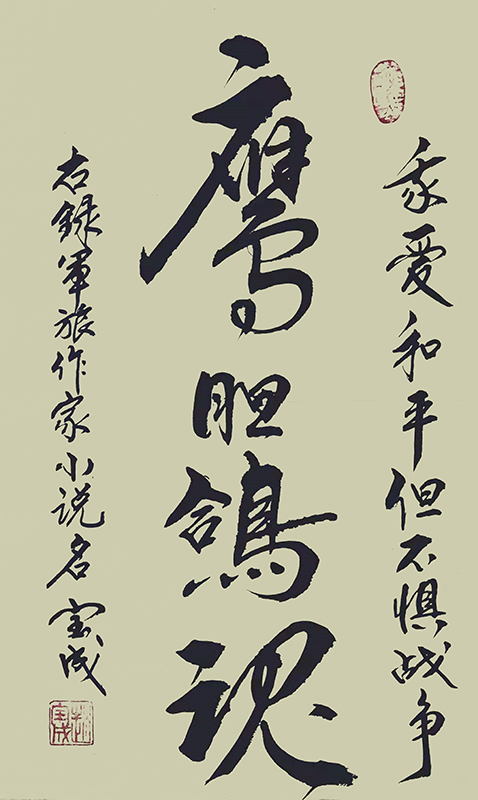 我爱和平但不惧战争
鹰胆鴿魂
右録軍旅作家小说名 宝成